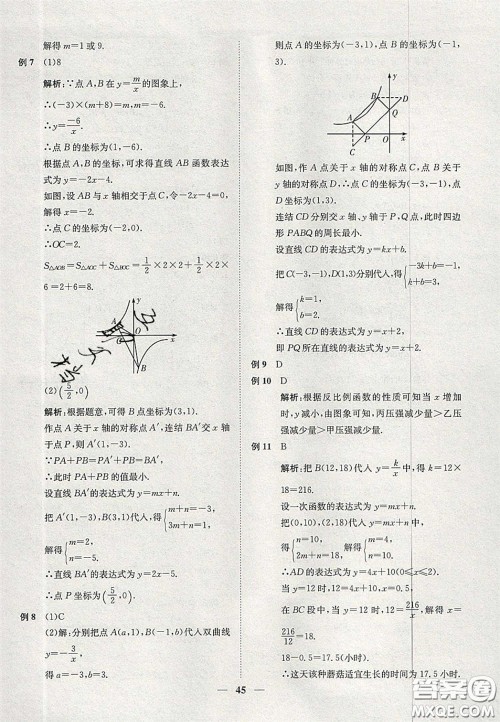 解得 m=1 或 9.
例 7 (1)8
解析:∵点 A,B 在 y=m/x 的图象上,
∴(-3)×(m+8)=m,m=-6.
∴y=-6/x.
∴点 B 的坐标为(1,-6).
根据点 A,B 的坐标,可求得直线 AB 函数表达
式为 y=-2x-4.
如图,设 AB 与 x 轴相交于点 C,令-2x-4=0,
解得 x=-2.
∴点 C 的坐标为(-2,0).
∴OC=2.
S△AOB=S△AOC+S△BOC=1/2×2×2+1/2×2×
6=2+6=8.
y
A
C O x
B
(2)(5/2,0)
解析:根据题意,可得 B 点坐标为(3,1).
作点 A 关于 x 轴的对称点 A′,连结 BA′交 x 轴
于点 P,则 A′(1,-3).
∵PA+PB=PA′+PB=BA′,
∴此时 PA+PB 的值最小.
设直线 BA′的表达式为 y=mx+n.
把 A′(1,-3),B(3,1)代入,得{m+n=-3, 3m+n=1,
解得{m=2, n=-5.
∴直线 BA′的表达式为 y=2x-5.
∴点 P 坐标为(5/2,0).
例 8 (1)C
(2)解:分别把点 A(a,1),B(-1,b)代入双曲线
y=-3/x,
得 a=-3,b=3.
则点 A 的坐标为(-3,1),点 B 的坐标为(-1,
3).
y
B D
A Q
P O x
C
如图,作 A 点关于 x 轴的对称点 C,B 点关于
y 轴的对称点 D.∴点 C 的坐标为(-3,-1),点
D 的坐标为(1,3).
连结 CD 分别交 x 轴,y 轴于 P,Q 点,此时四边
形 PABQ 的周长最小.
设直线 CD 的表达式为 y=kx+b.
把 C(-3,-1),D(1,3)分别代入,得{-3k+b=-1, k+b=3,
解得{k=1, b=2.
∴直线 CD 的表达式为 y=x+2.
即 PQ 所在直线的表达式为 y=x+2.
例 9 D
例 10 D
解析:根据反比例函数的性质可知当 x 增加
时,y 减小,由图象可知,丙压强减少量>乙压
强减少量>甲压强减少量.
例 11 B
解析:把 B(12,18)代入 y=k/x 中,得 k=12×
18=216.
设一次函数的表达式为 y=mx+n.
把(0,10),(2,18)代入 y=mx+n 中,
得{n=10, 2m+n=18, 解得{m=4, n=10.
∴AD 的表达式为 y=4x+10(0≤x≤2).
当 y=12 时,12=4x+10,x=0.5,
在 BC 段中,当 y=12 时,12=216/x,解得 x=
216/12=18.
18-0.5=17.5(小时).
∴这天该种蘑菇适宜生长的时间为 17.5 小时.
45
答案圈
MXQE.COM